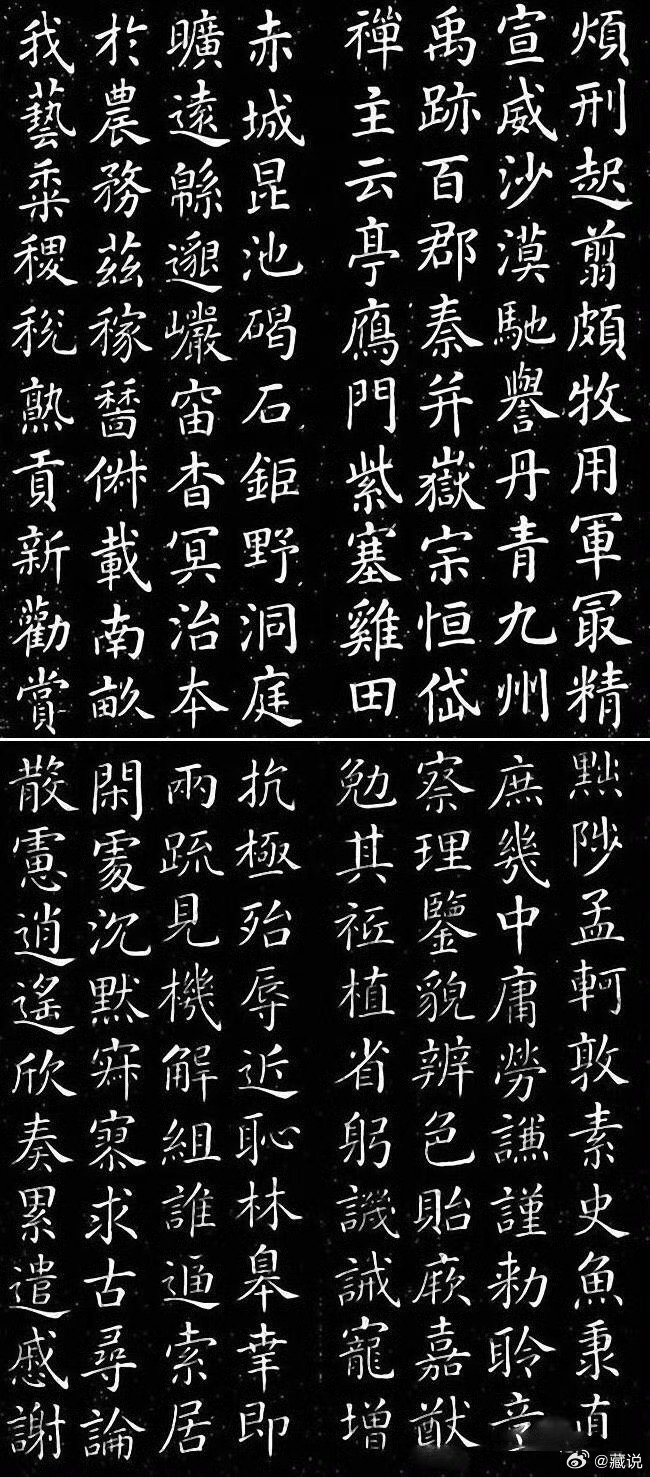 煩刑起翦頗牧用軍冣精
宣威沙漠馳譽丹青九州
禹跡百郡秦并嶽宗恒岱
禪主云亭鴈門紫塞雞田
赤城昆池碣石鉅野洞庭
曠遠緜邈巖岫杳冥治本
於農務茲稼穡俶載南畝
我藝黍稷稅熟貢新勸賞
黜陟孟軻敦素史魚秉直
庶幾中庸勞謙謹勑聆音
察理鑒貌辨色貽厥嘉猷
勉其祗植省躬譏誡寵增
抗極殆辱近恥林皋幸即
兩疏見機解組誰逼索居
閑處沉默寂寥求古尋論
散慮逍遙欣奏累遣慼謝
@藏说